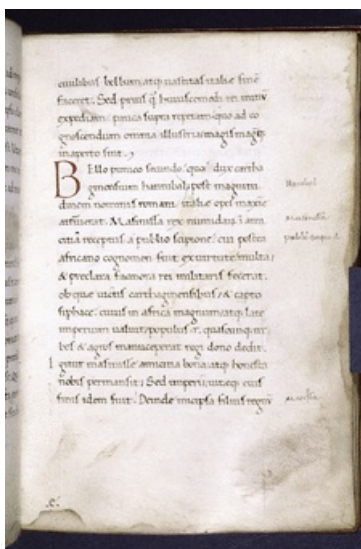 ciuilibus bellum atq; uastitas italiae finē
faceret. Sed prius q̄ huiuscemodi rei initiū
expediam: pauca supra repetam: quo ad co
gnoscendum omnia illustria magis magisq;
in aperto sint.
Bello punico secundo quo dux cartha
ginensium hannibal, post magnitu
dinem nominis romani, italiae opes maxīe
attriuerat. Masinissa rex numidarū ī ami
citiā receptus a publio scipione, cui postea
africano cognomen fuit ex uirtute, multa
& preclara facinora rei militaris fecerat.
ob que uictis carthaginensibus, & capto
siphace, cuius in africa magnum atq; late
imperium ualuit, populus .r. quascunq; ur
bes & agros manu ceperat regi dono dedit.
Igitur masinisse amicitia bona atq; honesta
nobis permansit. Sed imperii uiteq; eius
finis idem fuit. Deinde micipsa filius regnū
.c.